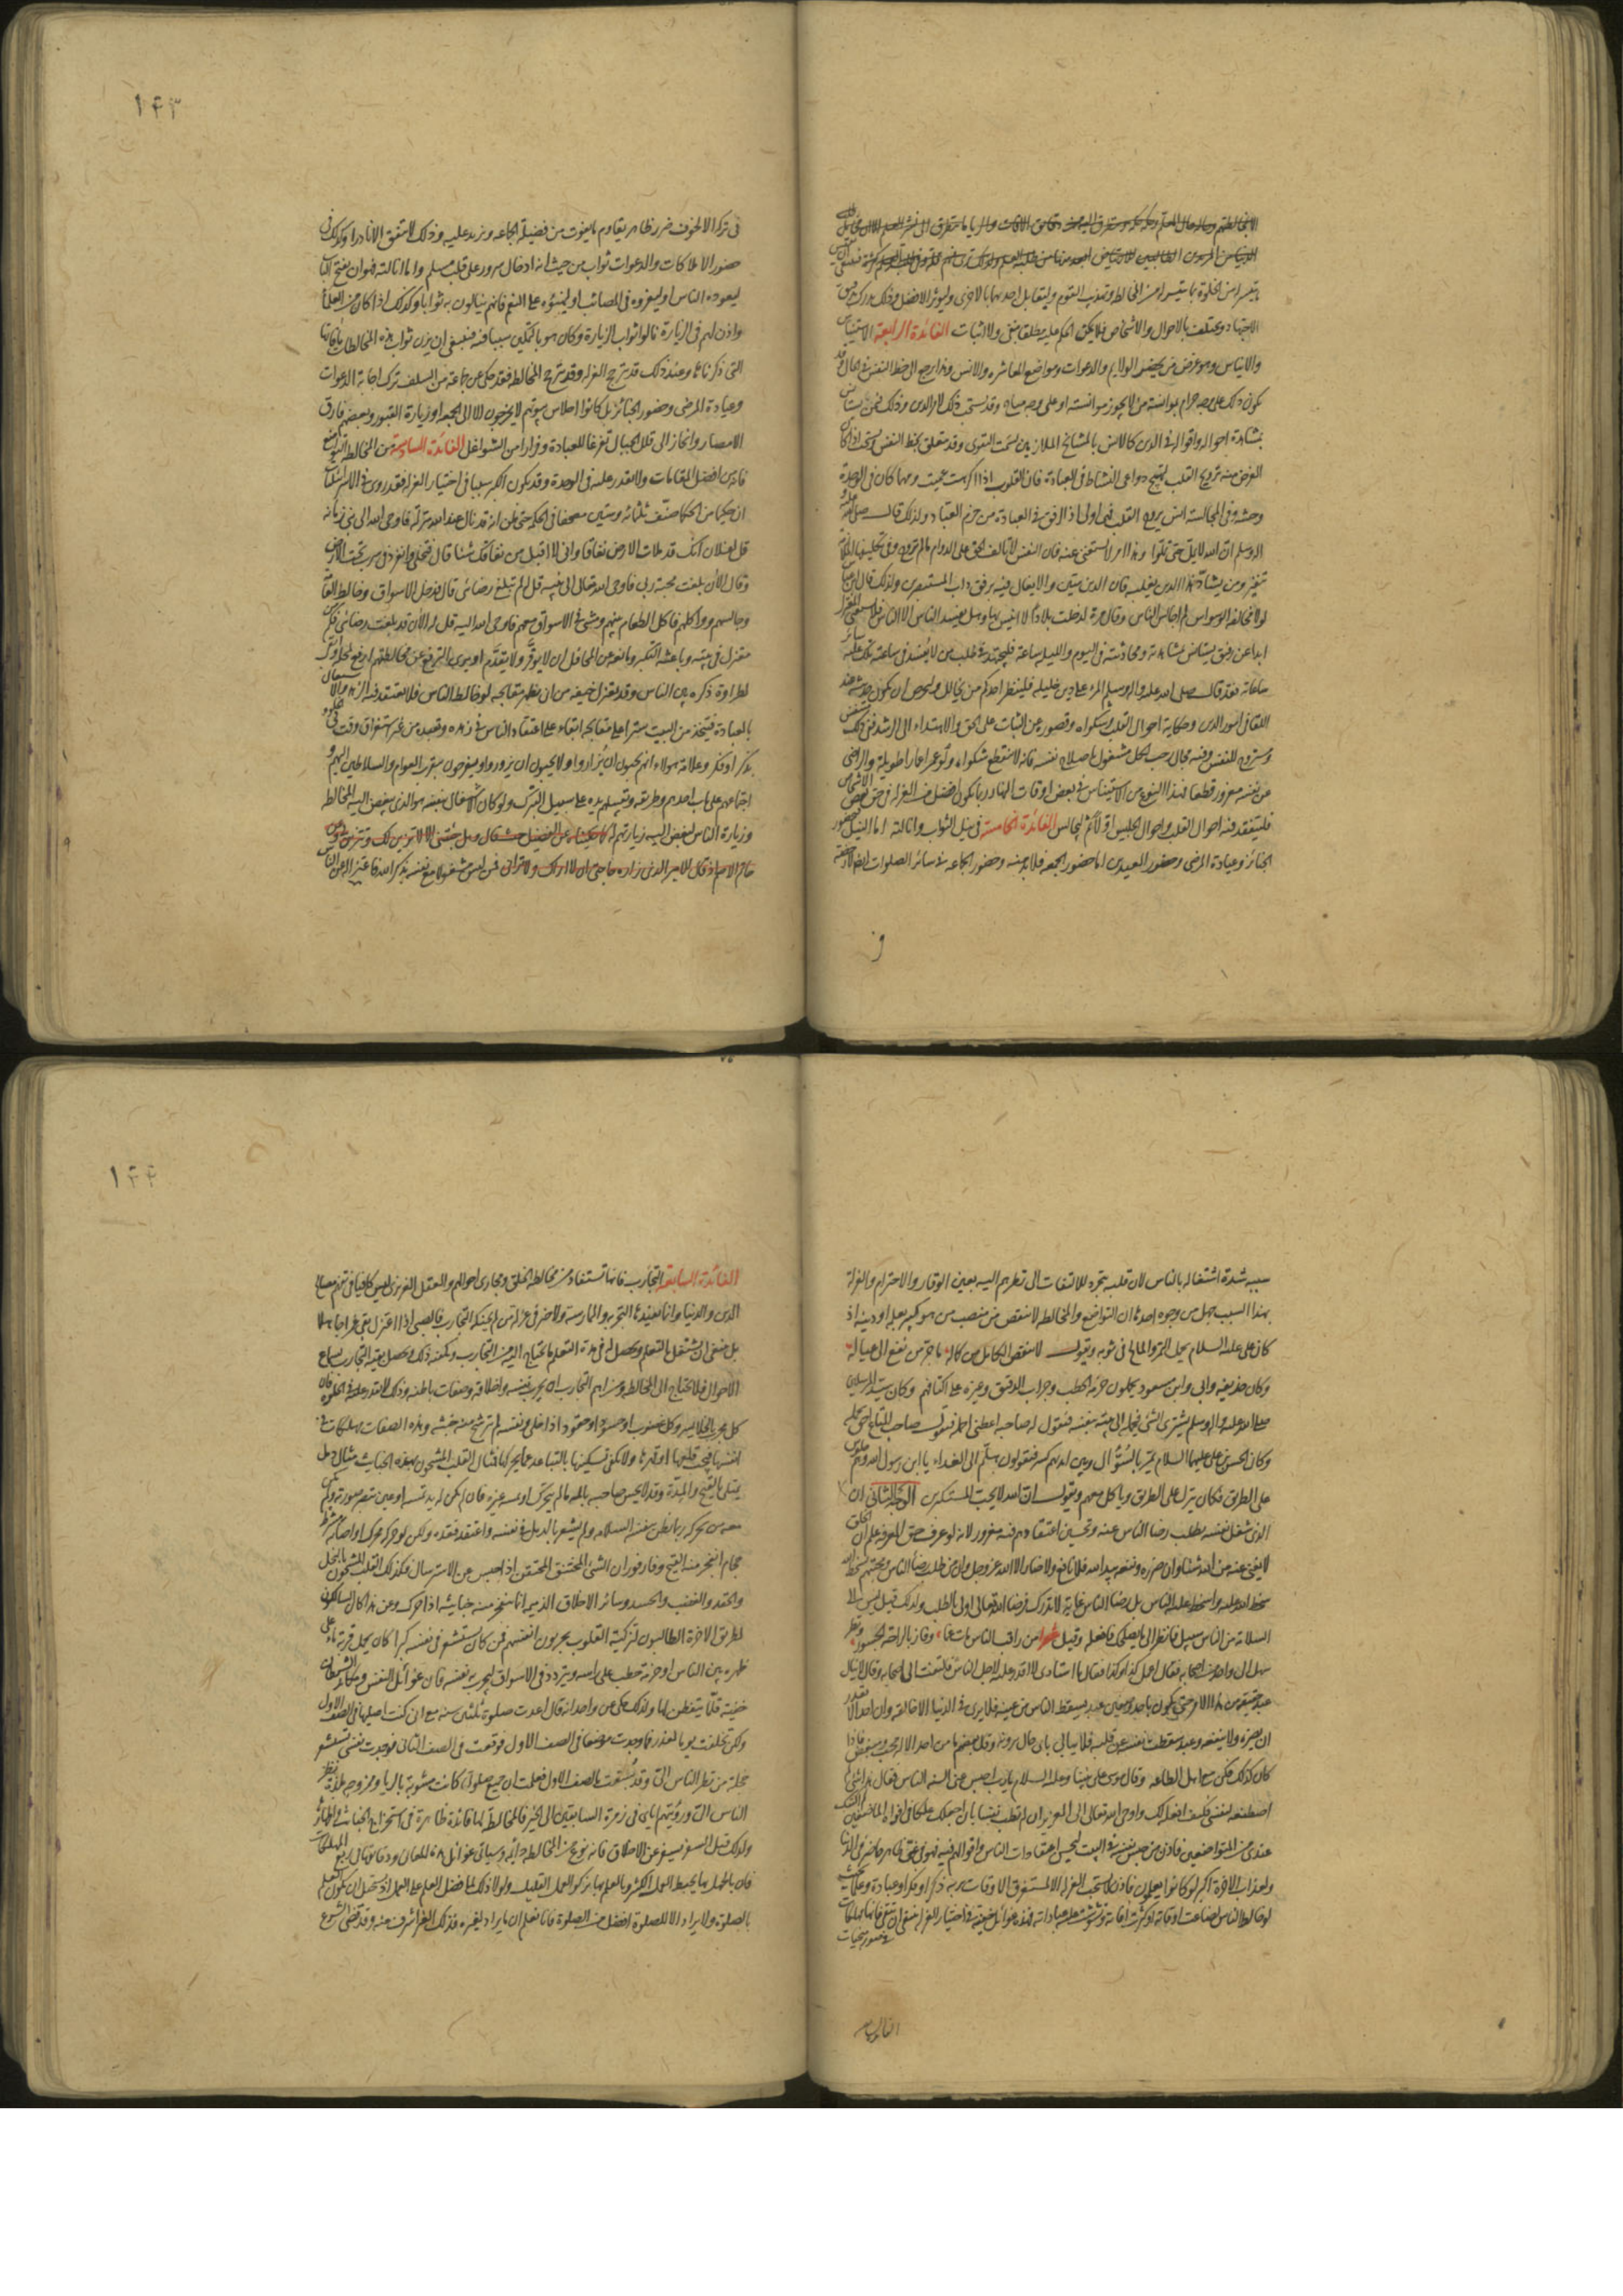 الدين من المريدين الطالبين للارتياض ابعد منها من طلبة العلم ولذلك ترى فيهم قلة وفي طلبة العلم كثرة فينبغي ان يقيس
ما تيسر له من الخلوة بما تيسر له من المخالطة وتهذيب القوم وليقابل احدهما بالاخرى وليوثر الافضل وذلك يدرك بدقيق
الاجتهاد ويختلف بالاحوال والاشخاص فلا يمكن الحكم عليه مطلقا بنفي ولا اثبات الفائدة الرابعة الاستيناس
والايناس وهو غرض من يحضر الولايم والدعوات ومواضع المعاشرة والانس وهذا يرجع الى حظ النفس في الحال وقد
يكون ذلك على وجه حرام بموانسة من لا يجوز موانسته او على وجه مباح وقد يستحب ذلك لامر الدين وذلك فيمن يستانس
بمشاهدة احواله واقواله في الدين كالانس بالمشايخ الملازمين لسمت التقوى وقد يتعلق بحظ النفس ويستحب اذا كان
الغرض منه ترويح القلب لتهييج دواعي النشاط في العبادة فان القلوب اذا اكرهت عميت ومهما كان في الوحدة
وحشة وفي المجالسة انس يروح القلب فهي اولى اذ الرفق في العبادة من حزم العباد ولذلك قال صلى الله عليه
واله وسلم ان الله لا يمل حتى تملوا وهذا امر لا يستغنى عنه فان النفس لا تالف الحق على الدوام ما لم تروح وفي تكليفها الملازمة
تنفير ومن يشاد هذا الدين يغلبه فان الدين متين والايغال فيه برفق داب المستبصرين ولذلك قال ابن عباس
لولا مخافة الوسواس لم اجالس الناس وقال مرة لدخلت بلادا لا انيس بها وهل يفسد الناس الا الناس فلا يستغني المعتزل
ابدا عن رفيق يستانس بمشاهدته ومحادثته في اليوم والليلة ساعة فليجتهد في طلب من لا يفسد في ساعته تلك عليه سائر
ساعاته فقد قال صلى الله عليه واله وسلم المرء على دين خليله فلينظر احدكم من يخالل وليحرص ان يكون حديثه عند
اللقاء في امور الدين وحكاية احوال القلب وشكواه وقصوره عن الثبات على الحق والاهتداء الى الرشد ففي ذلك متنفس
ومتروح للنفس وفيه مجال رحب لكل مشغول باصلاح نفسه فانه لا تنقطع شكواه ولو عمر اعمارا طويلة والراضي
عن نفسه مغرور قطعا فهذا النوع من الاستيناس في بعض اوقات النهار ربما يكون افضل من العزلة في حق بعض الاشخاص
فليتفقد فيه احوال القلب واحوال الجليس اولا ثم ليجالس الفائدة الخامسة في نيل الثواب وانالته اما النيل فبحضور
الجنائز وعيادة المرضى وحضور العيدين اما حضور الجمعة فلا بد منه وحضور الجماعة في سائر الصلوات ايضا لا رخصة
في
١٤٣
في تركه الا لخوف ضرر ظاهر يقاوم ما يفوت من فضيلة الجماعة ويزيد عليه وذلك لا يتفق الا نادرا وكذلك في
حضور الاملاكات والدعوات ثواب من حيث انه ادخال سرور على قلب مسلم واما انالته فهو ان يفتح الباب
ليعوده الناس او ليعزوه في المصائب او ليهنئوه على النعم فانهم ينالون به ثوابا وكذلك اذا كان من العلماء
واذن لهم في الزيارة نالوا ثواب الزيارة وكان هو بالتمكين سببا فيه فينبغي ان يزن ثواب هذه المخالطات بافاتها
التي ذكرناها وعند ذلك قد يترجح العزلة وقد يترجح المخالطة فقد حكي عن جماعة من السلف ترك اجابة الدعوات
وعيادة المرضى وحضور الجنائز بل كانوا احلاس بيوتهم لا يخرجون الا الى الجمعة او زيارة القبور وبعضهم فارق
الامصار وانحاز الى قلل الجبال تفرغا للعبادة وفرارا من الشواغل الفائدة السادسة من المخالطة التواضع
فانه من افضل المقامات ولا يقدر عليه في الوحدة وقد يكون الكبر سببا في اختيار العزلة فقد روي في الاسرائيليات
ان حكيما من الحكماء صنف ثلثمائة وستين مصحفا في الحكمة حتى ظن انه قد نال عند الله منزلة فاوحى الله الى نبي زمانه
قل لفلان انك قد ملات الارض نفاقا واني لا اقبل من نفاقك شيئا قال فتخلى وانفرد في سرب تحت الارض
وقال الان بلغت محبة ربي فاوحى الله تعالى الى نبيه قل له لم تبلغ رضائي قال فدخل الاسواق وخالط العامة
وجالسهم وواكلهم فاكل الطعام بينهم ومشى في الاسواق معهم فاوحى الله اليه قل له الان قد بلغت رضائي فكم من
معتزل في بيته وباعثه التكبر ومانعه عن المحافل ان لا يوقر ولا يقدم او يرى الترفع عن مخالطتهم ارفع لمحله وابقى
لطراوة ذكره بين الناس وقد يعتزل خيفة من ان يظهر مقابحه لو خالط الناس فلا يعتقد فيه الزهد والاشتغال
بالعبادة فيتخذ من البيت سترا على مقابحه ابقاء على اعتقاد الناس في زهده وتعبده من غير استغراق وقت في الخلوة
بذكر او فكر وعلامة هولاء انهم يحبون ان يزاروا ولا يحبون ان يزوروا ويفرحون بتقرب العوام والسلاطين اليهم و
اجتماعهم على باب احدهم وطريقه وتقبيلهم يده على سبيل التبرك ولو كان الاشتغال بنفسه هو الذي يبغض اليه المخالطة
وزيارة الناس لبغض اليه زيارتهم له كما حكيناه عن الفضيل حيث قال وهل جئتني الا لاتزين لك وتتزين لي وعن
حاتم الاصم اذ قال للامير الذي زاره حاجتي ان لا اراك ولا تراني فمن ليس مشغولا مع نفسه بذكر الله فاعتزاله عن الناس
سببه شدة اشتغاله بالناس لان قلبه يتجرد للالتفات الى نظرهم اليه بعين الوقار والاحترام والعزلة
بهذا السبب جهل من وجوه احدها ان التواضع والمخالطة لا تنقص من منصب من هو كبير بعلمه او دينه اذ
كان علي عليه السلام يحمل التمر والمالح في ثوبه ويقول لا ينقص الكامل من كماله ما جر من نفع الى عياله
وكان حذيفة وابي وابن مسعود يحملون حزم الحطب وجراب الدقيق وغيره على اكتافهم وكان سيد المرسلين
صلى الله عليه واله وسلم يشتري الشيء فيحمله الى بيته بنفسه فيقول له صاحبه اعطني احمله فيقول صاحب المتاع احق بحمله
وكان الحسن بن علي عليهما السلام يمر بالسؤال وبين ايديهم كسر فيقولون هلم الى الغداء يا ابن رسول الله وهم جلوس
على الطريق فكان ينزل على الطريق وياكل معهم ويقول ان الله لا يحب المستكبرين الوجه الثاني ان
الذي شغل نفسه بطلب رضا الناس عنه وتحسين اعتقادهم فيه مغرور لانه لو عرف الله حق المعرفة علم ان الخلق
لا يغنون عنه من الله شيئا وان ضرره ونفعه بيد الله فلا نافع ولا ضار الا الله عز وجل وان من طلب رضا الناس ومحبتهم بسخط الله
سخط الله عليه واسخط عليه الناس بل رضا الناس غاية لا تدرك فرضا الله تعالى اولى بالطلب ولذلك قيل ليس الى
السلامة من الناس سبيل فانظر الى ما يصلحك فافعله وقيل شعر من راقب الناس مات غما وفاز بالراحة الجسور ونظر
سهل الى واحد من اصحابه فقال اعمل كذا وكذا فقال يا استادي لا اقدر عليه لاجل الناس فالتفت الى اصحابه وقال لا ينال
عبد حقيقة من هذا الامر حتى يكون باحد وصفين عبد يسقط الناس من عينه فلا يرى في الدنيا الا خالقه وان احدا لا يقدر
ان يضره ولا ينفعه وعبد سقطت نفسه عن قلبه فلا يبالي باي حال يرونه وقال بعضهم ما من احد الا له محب ومبغض فاذا
كان كذلك فكن مع اهل الطاعة وقال موسى على نبينا وعليه السلام يا رب احبس عني السنة الناس فقال هذا شيء لم
اصطنعه لنفسي فكيف افعله لك واوحى الله تعالى الى العزير ان لم تطب نفسا بان اجعلك علكا في افواه الماضغين لم اكتبك
عندي من المتواضعين فاذن من حبس نفسه في البيت ليحسن اعتقادات الناس واقوالهم فيه فهو في عناء حاضر في الدنيا
ولعذاب الاخرة اكبر لو كانوا يعلمون فاذن لا تستحب العزلة الا لمستغرق الاوقات بربه ذكرا وفكرا وعبادة وعلما بحيث
لو خالطه الناس لضاعت اوقاته او كثرت افاته وتشوشت عليه عباداته فهذه غوائل خفية في اختيار العزلة ينبغي ان تتقى فانها مهلكات
في صور منجيات
١٤٤
الفائدة السابعة التجارب فانها تستفاد من مخالطة الخلق ومجاري احوالهم والعقل الغريزي ليس كافيا في تفهم مصالح
الدين والدنيا وانما تفيدها التجربة والممارسة ولا خير في عزلة من لم تحنكه التجارب فالصبي اذا اعتزل بقي غمرا جاهلا
بل ينبغي ان يشتغل بالتعلم ويحصل له في مدة التعلم ما يحتاج اليه من التجارب ويكفيه ذلك ويحصل بقية التجارب بسماع
الاحوال فلا يحتاج الى المخالطة ومن اهم التجارب ان يجرب نفسه واخلاقه وصفات باطنه وذلك لا يقدر عليه في الخلوة فان
كل مجرب في الخلا يسر وكل غضوب او حسود او حقود اذا خلى ونفسه لم يترشح منه خبثه وهذه الصفات مهلكات في
انفسها يجب قلعها او قهرها ولا يكفي تسكينها بالتباعد عما يحركها فمثال القلب المشحون بهذه الخبائث مثال دمل
يمتلئ بالقيح والمدة وقد لا يحس صاحبه بالمه ما لم يتحرك او يمسه غيره فان لم يكن له يد تمسه او عين تبصر صورته ولم يكن
معه من يحركه ربما ظن بنفسه السلامة ولم يشعر بالدمل في نفسه واعتقد فقده ولكن لو حركه محرك او اصابه مشرط
حجام انفجر منه القيح وفار فوران الشيء المختنق المحتقن اذا حبس عن الاسترسال فكذلك القلب المشحون بالبخل
والحقد والغضب والحسد وسائر الاخلاق الذميمة انما تنفجر منه خبائثه اذا حرك وعن هذا كان السالكون
لطريق الاخرة الطالبون لتزكية القلوب يجربون انفسهم فمن كان يستشعر في نفسه كبرا كان يحمل قربة ماء على
ظهره بين الناس او حزمة حطب على راسه ويتردد في الاسواق ليجرب نفسه فان غوائل النفس ومكائد الشيطان
خفية قلما يتفطن لها ولذلك حكي عن واحد انه قال اعدت صلوة ثلثين سنة مع اني كنت اصليها في الصف الاول
ولكن تخلفت يوما لعذر فما وجدت موضعا في الصف الاول فوقفت في الصف الثاني فوجدت نفسي تستشعر
خجلة من نظر الناس الي وقد سبقت بالصف الاول فعلمت ان جميع صلواتي كانت مشوبة بالريا وممزوجة بلذة نظر
الناس الي ورؤيتهم اياي في زمرة السابقين الى الخير فالمخالطة لها فائدة ظاهرة في استخراج الخبائث واظهارها
ولذلك قيل السفر يسفر عن الاخلاق فانه نوع من المخالطة دائمة وسياتي غوائل هذه المعاني ودقائقها في ربع المهلكات
فان بالجهل بها يحبط العمل الكثير وبالعلم بها يزكو العمل القليل ولولا ذلك لما فضل العلم على العمل اذ يستحيل ان يكون العلم
بالصلوة ولا يراد الا للصلوة افضل من الصلوة فانا نعلم ان ما يراد لغيره فذلك الغير اشرف منه وقد قضى الشرع